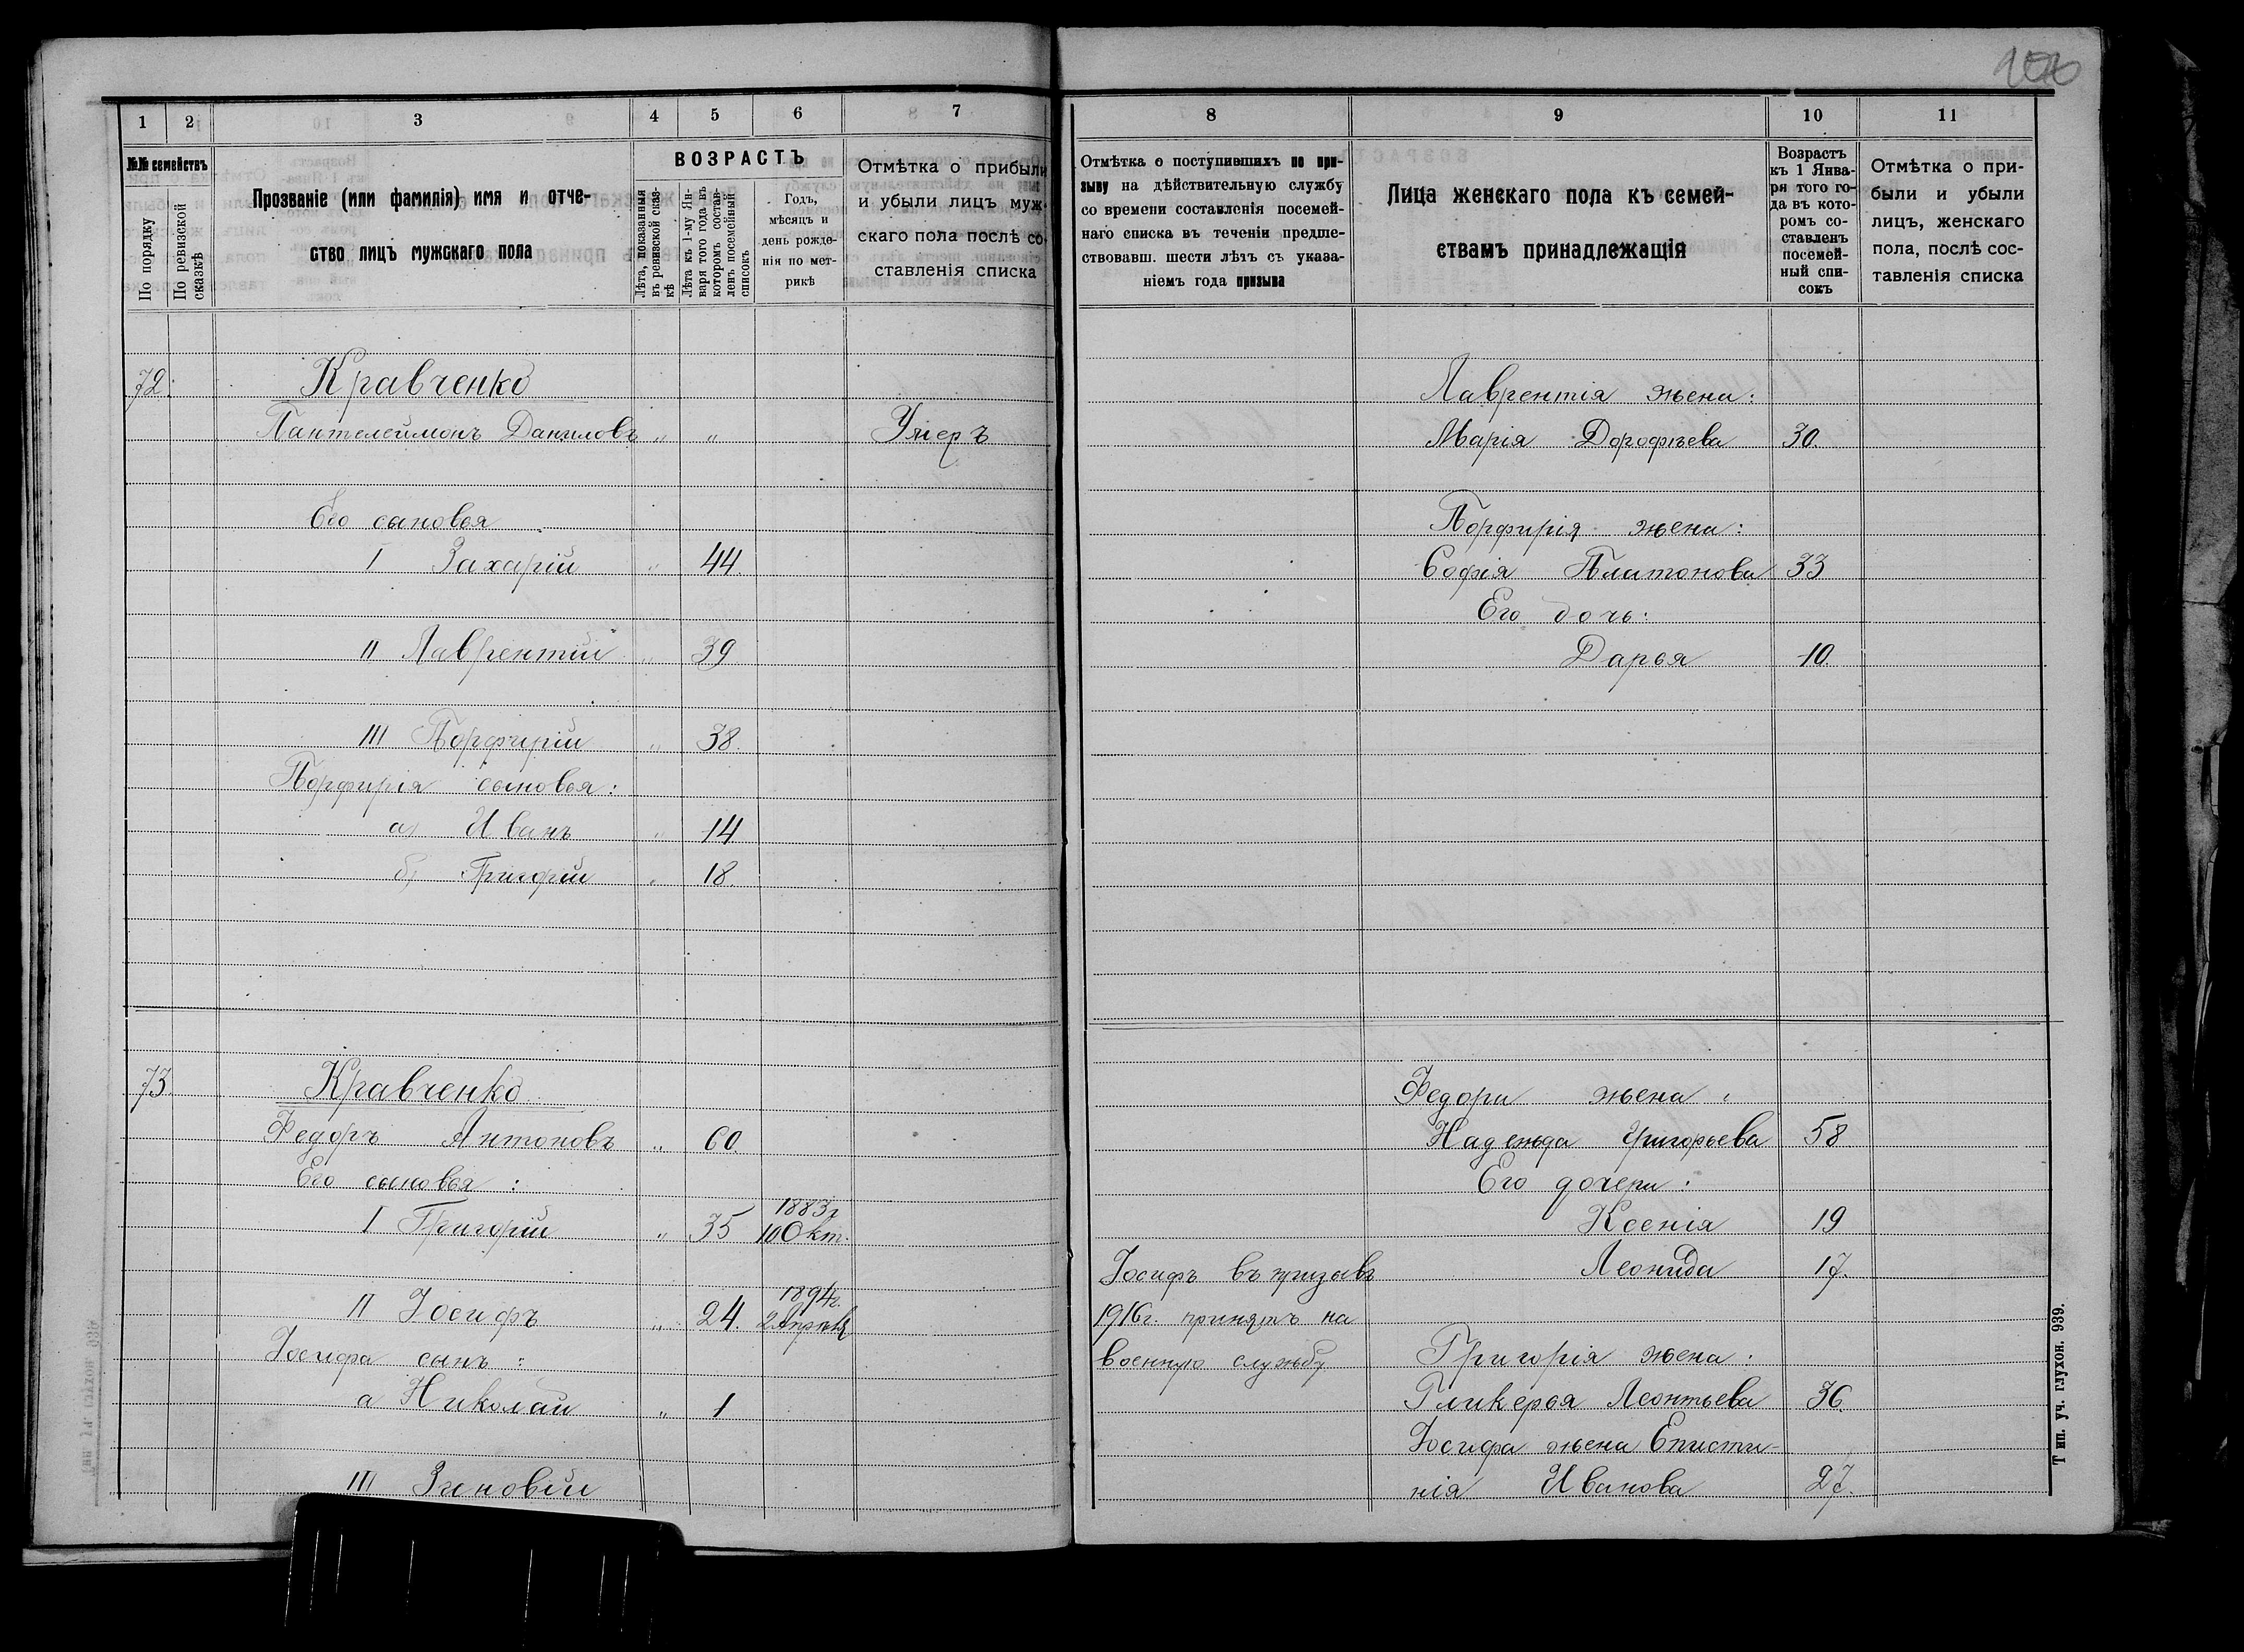 1 2 3 4 5 6 7
№№ семействъ
По порядку
По ревизской сказкѣ
Прозваніе (или фамилія) имя и отче-
ство лицъ мужскаго пола
ВОЗРАСТЪ
Лѣта, показанныя въ ревизской сказ-кѣ
Лѣта къ 1-му Ян-варя того года въ которомъ состав-ленъ посемейный списокъ
Годъ,
мѣсяцъ и
день рожде-
нія по мет-
рикѣ
Отмѣтка о прибыли
и убыли лицъ муж-
скаго пола послѣ со-
ставленія списка
72. Кравченко
Пантелеймонъ Даниловъ „ „ Умеръ
Его сыновья
I Захарій „ 44.
II Лаврентій „ 39
III Порфирій „ 38.
Порфирія сыновья:
а) Иванъ „ 14
б) Григорій „ 18.
73. Кравченко
Федоръ Антоновъ „ 60.
Его сыновья:
1883г
I Григорій „ 35 10 Окт.
1894г.
II Іосифъ „ 24. 2 Апрѣля
Іосифа сынъ:
а Николай „ 1
III Зиновій
8 9 10 11
Отмѣтка о поступившихъ по при-
зыву на дѣйствительную службу
со времени составленія посемей-
наго списка въ теченіи предше-
ствовавш. шести лѣтъ съ указа-
ніемъ года призыва
Лица женскаго пола къ семей-
ствамъ принадлежащія
Возрастъ
къ 1 Янва-
ря того го-
да въ кото-
ромъ со-
ставленъ
посемей-
ный спи-
сокъ
Отмѣтка о при-
были и убыли
лицъ, женскаго
пола, послѣ сос-
тавленія списка
Лаврентія жена:
Марія Дорофѣева 30.
Порфирія жена:
Софія Платонова 33
Его дочь:
Дарья 10.
Федора жена:
Надежда Григорьева 58
Его дочери:
Ксенія 19
Іосифъ въ призывъ Леонида 17.
1916г. принятъ на
военную службу Григорія жена:
Гликерья Леонтьева 36.
Іосифа жена Еписти-
нія Иванова 27.
Тип. уч. глухон. 939.